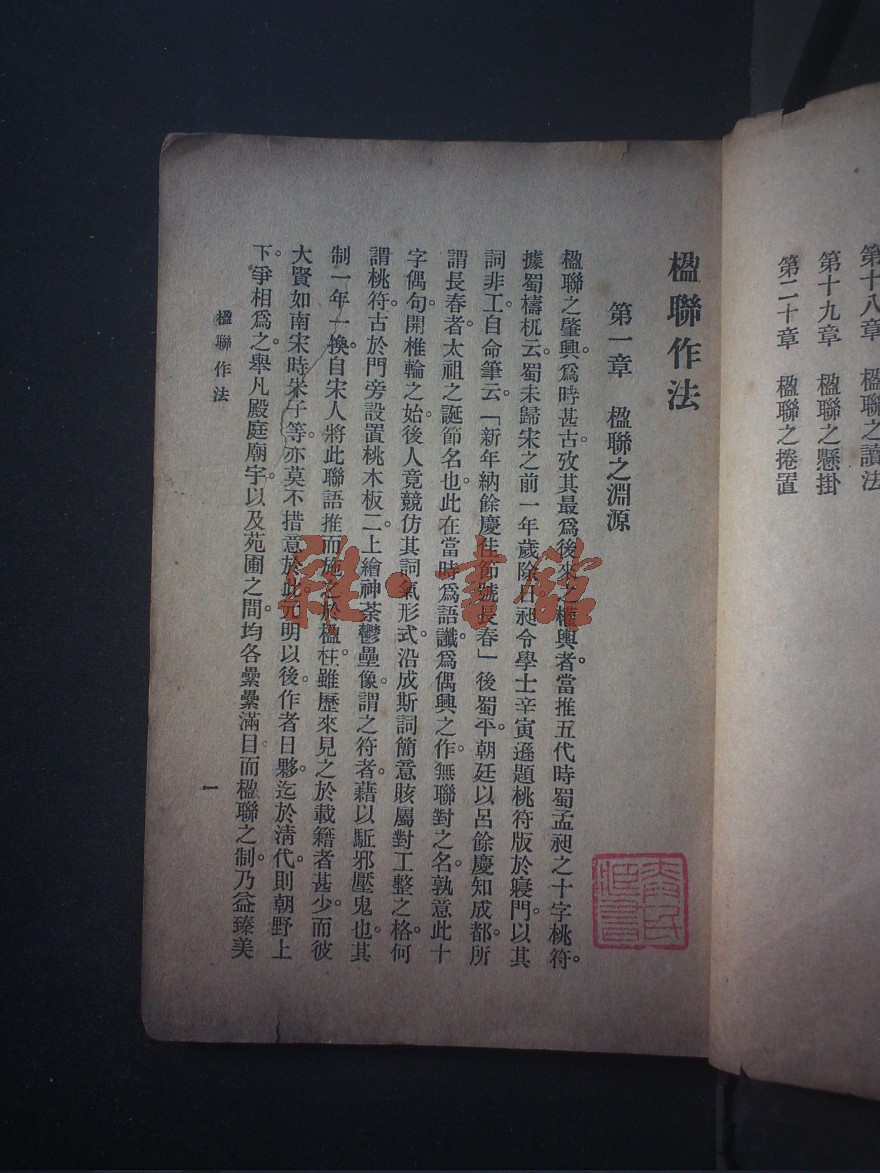 第十八章　楹聯之讀法
第十九章　楹聯之懸掛
第二十章　楹聯之捲置
楹聯作法
第一章　楹聯之淵源
楹聯之肇興。爲時甚古。攷其最爲後來之權輿者。當推五代時蜀孟昶之十字桃符。
據蜀檮杌云。蜀未歸宋之前一年歲除日。昶令學士辛寅遜題桃符版於寢門。以其
詞非工。自命筆云。「新年納餘慶佳節號長春」後蜀平。朝廷以呂餘慶知成都。所
謂長春者。太祖之誕節名也。此在當時爲語讖。爲偶興之作。無聯對之名。孰意此十
字偶句。開椎輪之始。後人竟競仿其詞氣形式。沿成斯詞簡意賅屬對工整之格。何
謂桃符。古於門旁設置桃木板二。上繪神荼鬱壘像。謂之符者。藉以駈邪壓鬼也。其
制一年一換。自宋人將此聯語推而施之於楹柱。雖歷來見之於載籍者甚少。而彼
大賢如南宋時朱子等。亦莫不措意於此。元明以後。作者日夥。迄於淸代。則朝野上
下。爭相爲之。舉凡殿庭廟宇。以及苑囿之間。均各纍纍滿目。而楹聯之制。乃益臻美
楹聯作法
一
雜·書館